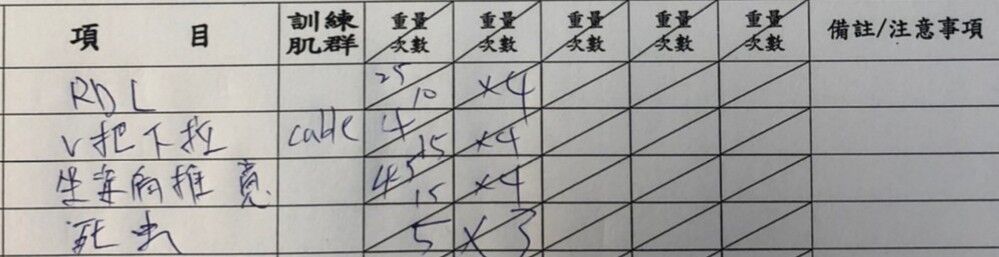 項目 訓練肌群 重量/次數 重量/次數 重量/次數 重量/次數 重量/次數 備註/注意事項
RDL 25/10 ×4
V把下拉 cable 4/15 ×4
坐姿肩推寬 45/15 ×4
死虫 5 ×3